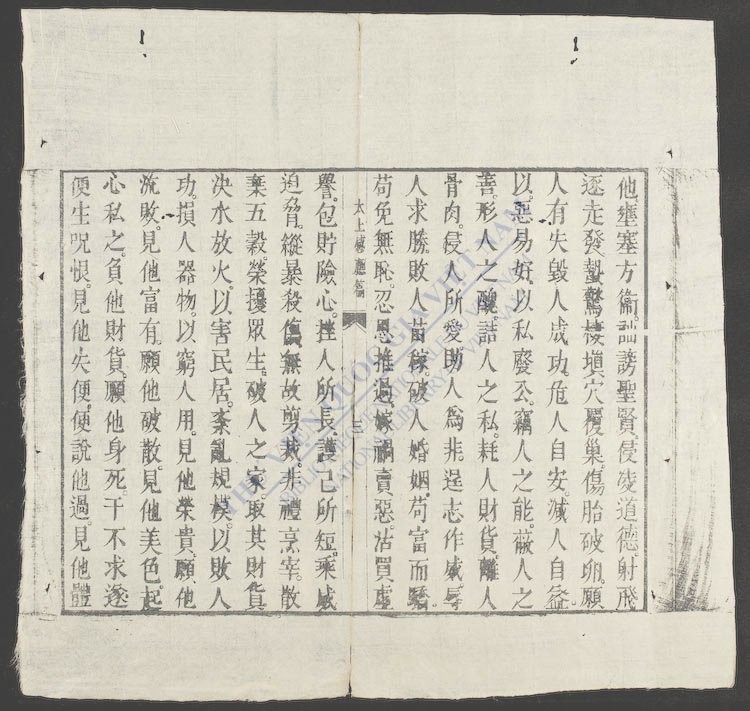 他。壅塞方術。訕謗聖賢。侵凌道德。射飛
逐走。發蟄驚棲。塡穴覆巢。傷胎破卵。願
人有失。毀人成功。危人自安。減人自益。
以惡易好。以私廢公。竊人之能。蔽人之
善。形人之醜。訐人之私。耗人財貨。離人
骨肉。侵人所愛。助人爲非。逞志作威。辱
人求勝。敗人苗稼。破人婚姻。苟富而驕。
苟免無恥。忍恩推過。嫁禍賣惡。沽買虛
太上感應篇
三
譽。包貯險心。挫人所長。護己所短。乘威
迫脅。縱暴殺傷。無故剪裁。非禮烹宰。散
棄五糓。榮擾眾生。破人之家。取其財貨
決水放火。以害民居。紊亂規模。以敗人
功。損人器物。以窮人用。見他榮貴。願他
流敗。見他富有。願他破散。見他美色。起
心私之。負他財貨。願他身死。干不求遂
便生咒恨。見他失便。便說他過。見他體
THƯ VIỆN QUỐC GIA VIỆT NAM
NATIONAL LIBRARY OF VIETNAM